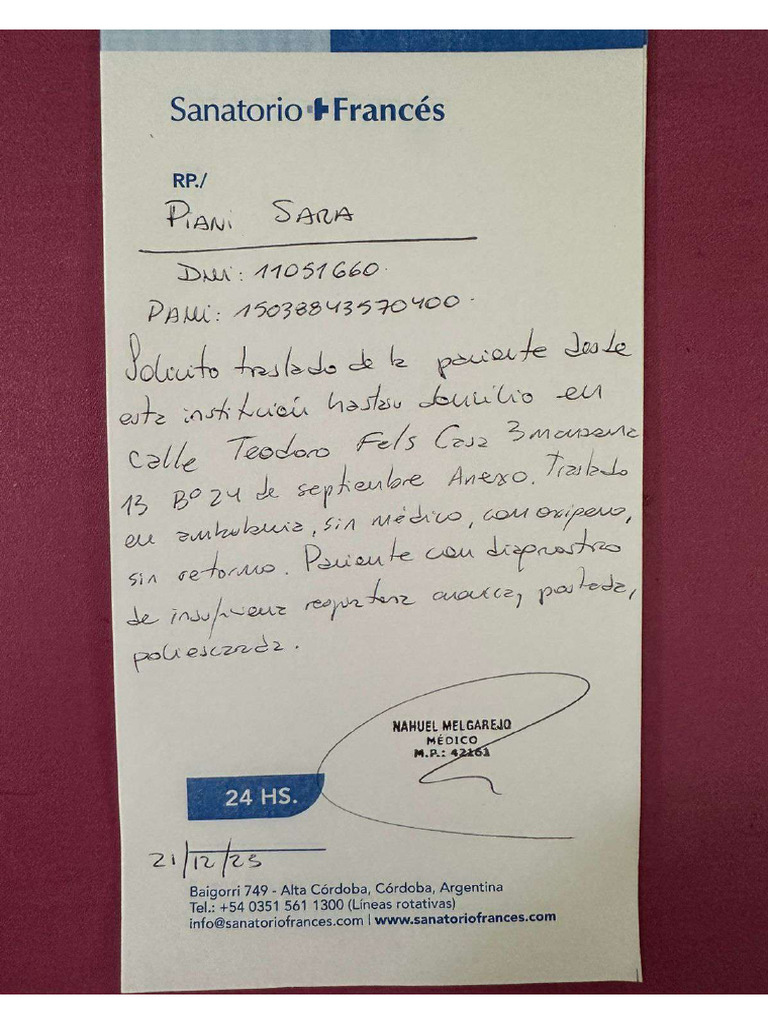 Sanatorio Francés
RP./
PIANI SARA
DNI: 11051660.
PAMI: 15038843570400.
Solicito traslado de la paciente desde
esta institución hasta domicilio en
calle Teodoro Fels Casa 3 manzana
13 Bº 24 de septiembre Anexo. Traslado
en ambulancia, sin médico, con oxigeno,
sin retorno. Paciente con diagnostico
de insuficiencia respiratoria cronica, postrada,
poliescarada.
NAHUEL MELGAREJO
MÉDICO
M.P.: 42161
24 HS.
21/12/25
Baigorri 749 - Alta Córdoba, Córdoba, Argentina
Tel.: +54 0351 561 1300 (Líneas rotativas)
info@sanatoriofrances.com | www.sanatoriofrances.com